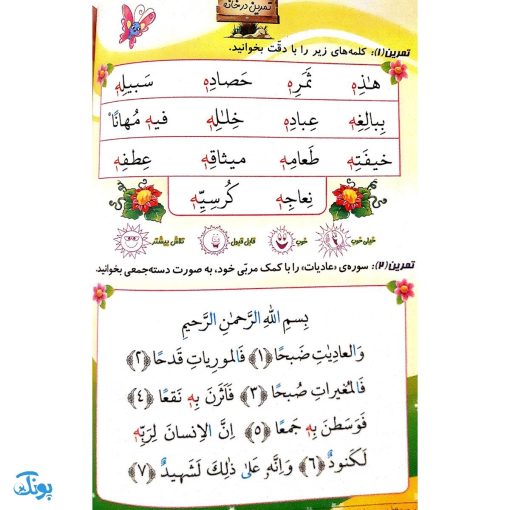 تمرین در خانه
تمرین(۱): کلمه‌های زیر را با دقّت بخوانید.
هٰذِهٖ ثَمَرِهٖ حَصادِهٖ سَبیلِهٖ
بِبالِغِهٖ عِبادِهٖ خِلٰلِهٖ فیهٖ مُهانًا
خیفَتِهٖ طَعامِهٖ میثاقِهٖ عِطفِهٖ
نِعاجِهٖ کُرسِیِّهٖ
خیلی خوب خوب قابل قبول تلاش بیشتر
تمرین(۲): سوره‌ی «عادیات» را با کمک مربّی خود، به صورت دسته‌جمعی بخوانید.
بِسمِ اللهِ الرَّحمٰنِ الرَّحیمِ
وَالعادِیٰتِ ضَبحًا ﴿۱﴾ فَالمورِیاتِ قَدحًا ﴿۲﴾
فَالمُغیراتِ صُبحًا ﴿۳﴾ فَاَثَرنَ بِهٖ نَقعًا ﴿۴﴾
فَوَسَطنَ بِهٖ جَمعًا ﴿۵﴾ اِنَّ الاِنسانَ لِرَبِّهٖ
لَکَنودٌ ﴿۶﴾ وَ اِنَّهٗ عَلیٰ ذٰلِکَ لَشَهیدٌ ﴿۷﴾
پونک